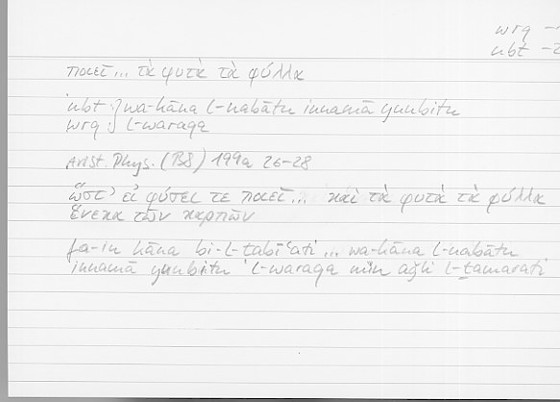 wrq –
nbt –
ποιεῖ... τὰ φυτὰ τὰ φύλλα
nbt :} wa-kāna l-nabātu innamā yunbitu
wrq :} l-waraqa
Arist. Phys. (B8) 199a 26-28
ὥστ’ εἰ φύσει τε ποιεῖ... καὶ τὰ φυτὰ τὰ φύλλα
ἕνεκα τῶν καρπῶν
fa-in kāna bi-l-ṭabīʿati ... wa-kāna l-nabātu
innamā yunbitu l-waraqa min aǧli l-ṯamarati